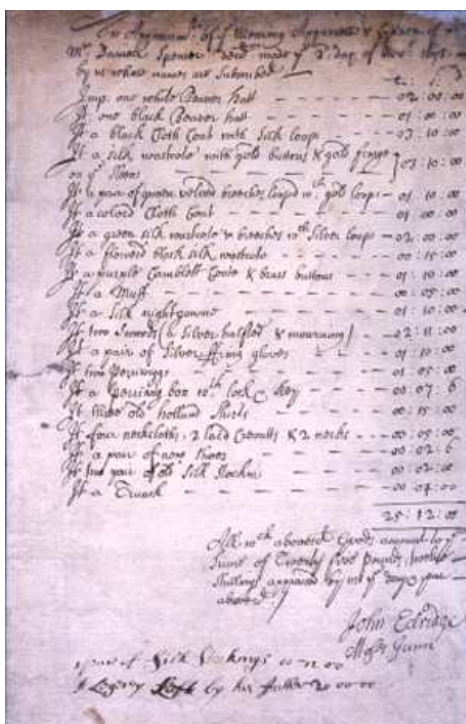 An of ye Wearing Apparrell &
Mr. Spencer made ye 2d. day of
by us whose names are Subscribed
Imp. one white Beaver hatt - - - 02 : 00 : 00
It one black Beaver hatt - - - 01 : 00 : 00
It a black Cloth Coat with Silk loops - - - 03 : 10 : 00
It a Silk wastcoate with gold buttons & gold fringe
on ye - - - 03 : 10 : 00
It a pair of green velvet breeches loop'd wth. gold loops - 01 : 10 : 00
It a colord Cloth Coat - - - 01 : 00 : 00
It a green silk wastcoate & breeches wth Silver loops - - 02 : 00 : 00
It a flowerd black silk wastcoate - - - 00 : 15 : 00
It a purple Camblett Coate & brass buttons - - 01 : 10 : 00
It a Muff - - - 00 : 05 : 00
It a Silk nightgowne - - - 01 : 10 : 00
It two Swords (a Silver & mourning) - - 02 : 11 : 00
It a pair of Silver gloves - - - 01 : 10 : 00
It two Perriwiggs - - - 01 : 05 : 00
It a box wth. lock & key - - - 00 : 07 : 6
It three old holland Shirts - - - 00 : 15 : 00
It four neckcloths, 2 lac'd & 2 - - 00 : 05 : 00
It a pair of new shoes - - - 00 : 02 : 6
It two pair of old Silk - - - 00 : 02 : 00
It a Trunk - - - 00 : 04 : 00
25 : 12 : 00
All wch abovesd Goods amount to ye
Sume of Twenty five pounds, twelve
shillings appraised by us ye day & year
abovesd
John Edridge
of Silk Stockings 00 00
A Legacy Left by his father 20 00 00